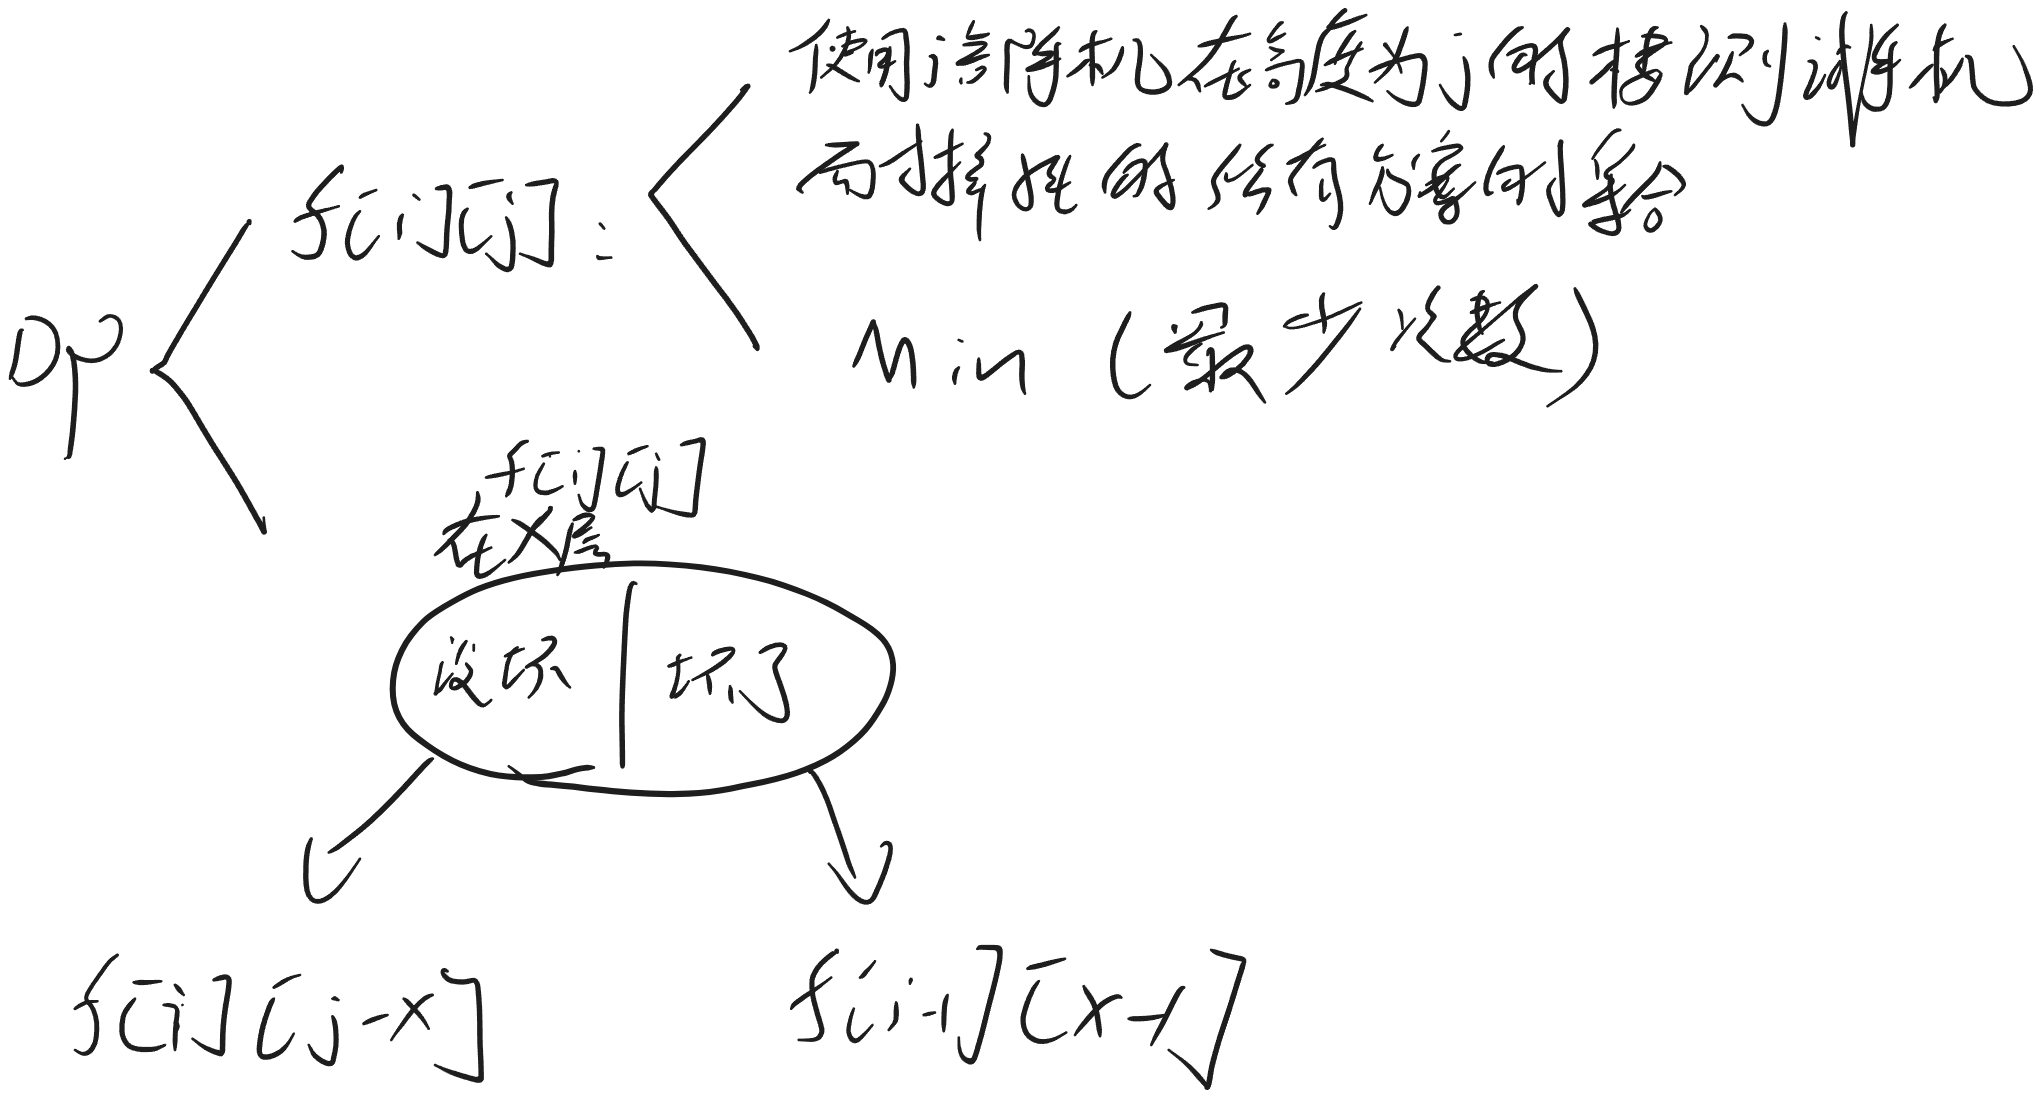 使用i台手机在高度为j的楼测试手机
而摔坏的所有方案的集合
f[i][j]:
DP
Min (最少次数)
f[i][j]
在x层
没坏 坏了
f[i][j-x] f[i-1][x-1]